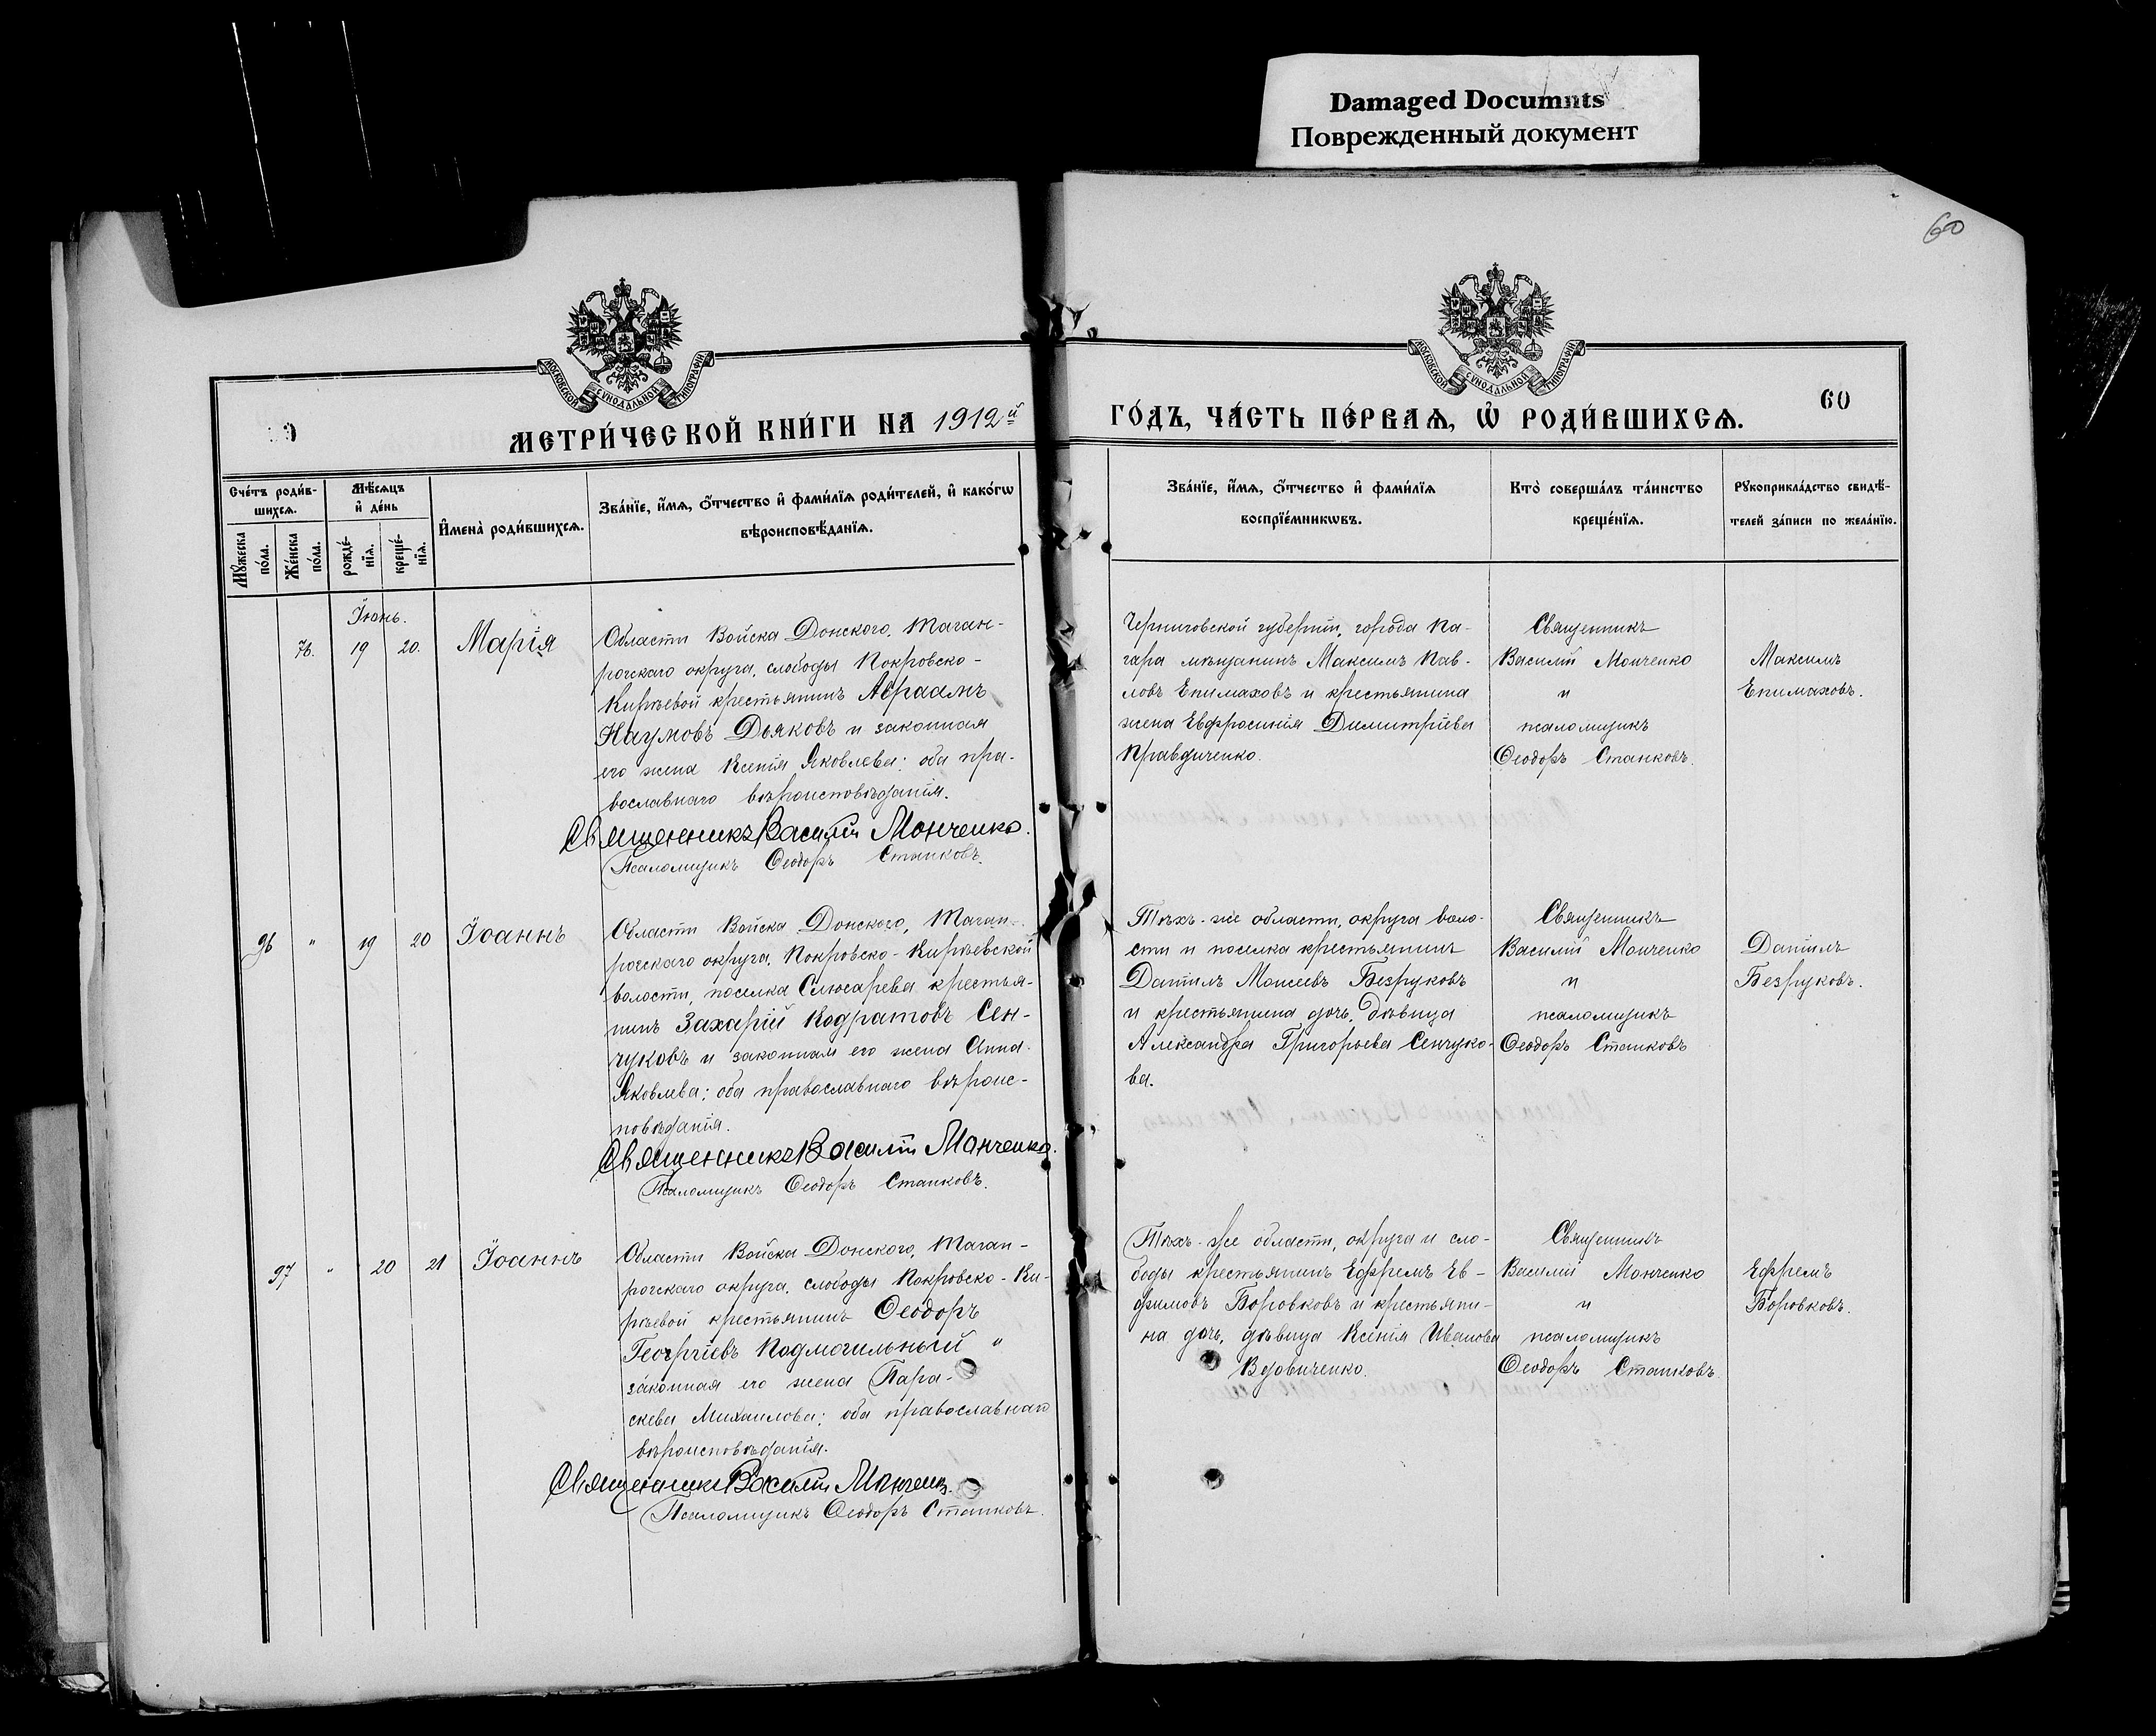 Damaged Documnts
Поврежденный документ
60
МОСКОВСКОЙ СѴНОДАЛЬНОЙ ТИПОГРАФІИ
МОСКОВСКОЙ СѴНОДАЛЬНОЙ ТИПОГРАФІИ
60
МЕТРИ́ЧЕСКОЙ КНИ́ГИ НА 1912й
ГО́ДЪ, ЧА́СТЬ ПЕ́РВАѦ, Ѡ РОДИ́ВШИХСѦ.
Сче́тъ роди́в-
шихсѧ.
Мꙋ́жеска по́ла.
Же́нска по́ла.
Мѣ́сѧцъ и де́нь
рожде́-нїѧ.
креще́-нїѧ.
Имена̀ роди́вшихсѧ.
Зва́нїе, и́мѧ, ѻ́тчество и фами́лїѧ роди́телей, и како́гѡ
вѣроисповѣ́данїѧ.
Зва́нїе, и́мѧ, ѻ́тчество и фами́лїѧ
воспрїе́мникѡвъ.
Кто̀ соверша́лъ та́инство
креще́нїѧ.
Рꙋкоприкла́дство свидѣ́-
телей за́писи по жела́нїю.
Іюнь.
76. 19 20. Марія
Области Войска Донского, Таган-
рогскаго округа, слободы Покровско-
Кирѣевой крестьянинъ Авраамъ
Наумовъ Дьяковъ и законная
его жена Ксенія Яковлева; оба пра-
вославнаго вѣроисповѣданія.
Священникъ Василій Монченко.
Псаломщикъ Ѳеодоръ Станковъ.
Черниговской губерніи, города По-
гара мѣщанинъ Максимъ Пав-
ловъ Епимаховъ и крестьянина
жена Евфросинія Димитріева
Правдиченко.
Священникъ
Василій Монченко
и
псаломщикъ
Ѳеодоръ Станковъ.
Максимъ
Епимаховъ.
96 " 19 20 Іоаннъ
Области Войска Донского, Таган-
рогскаго округа, Покровско-Кирѣевской
волости, поселка Слюсарева крестья-
нинъ Захарій Кодратовъ Сен-
чуковъ и законная его жена Анна
Яковлева; оба православнаго вѣроис-
повѣданія.
Священникъ Василій Монченко.
Псаломщикъ Ѳеодоръ Станковъ.
Тѣхъ-же области, округа воло-
сти и поселка крестьянинъ
Даніилъ Моисеевъ Безруковъ
и крестьянина дочь, дѣвица
Александра Григорьева Сенчуко-
ва.
Священникъ
Василій Монченко
и
псаломщикъ
Ѳеодоръ Станковъ
Даніилъ
Безруковъ.
97 " 20 21 Іоаннъ
Области Войска Донского, Таган-
рогскаго округа, слободы Покровско-Ки-
рѣевой крестьянинъ Ѳеодоръ
Георгіевъ Подмогильный и
законная его жена Пара-
скева Михаилова; оба православнаго
вѣроисповѣданія.
Священникъ Василій Монченко.
Псаломщикъ Ѳеодоръ Станковъ.
Тѣхъ-же области, округа и сло-
боды крестьянинъ Ефремъ Ев-
фимовъ Боровковъ и крестьяни-
на дочь, дѣвица Ксенія Иванова
Вдовиченко.
Священникъ
Василій Монченко
и
псаломщикъ
Ѳеодоръ Станковъ.
Ефремъ
Боровковъ.